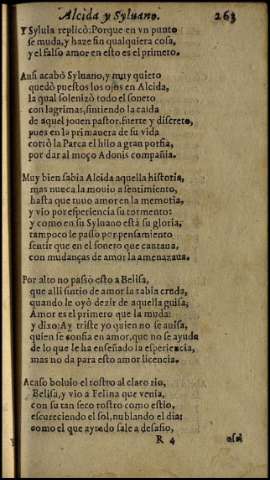 Alcida y Syluano. 263
Y Syluia replicò: Porque en vn punto
se muda, y haze sin qualquiera cosa,
y el falso amor en esto es el primero.
Ansi acabó Syluano, y muy quieto
quedó puestos los ojos en Alcida,
la qual solenizò todo el soneto
con lagrimas, sintiendo la caida
de aquel jouen pastor, fuerte y discreto,
pues en la primauera de su vida
cortò la Parca el hilo a gran porfia,
por dar al moço Adonis compañia.
Muy bien sabia Alcida aquella historia,
mas nunca la mouio a sentimiento,
hasta que tuuo amor en la memoria,
y vio por esperiencia su tormento:
y como en su Syluano està su gloria,
tampoco le passò por pensamiento
sentir que en el soneto que cantaua,
con mudanças de amor la amenazaua.
Por alto no passò esto a Belisa,
que alli sintio de amor la rabia cruda,
quando le oyò dezir de aquella guisa,
Amor es el primero que la muda:
y dixo: Ay triste yo quien no se auisa,
quien se confia en amor, que no se ayuda
de lo que le ha enseñado la esperiencia,
mas no da para esto amor licencia.
Acaso boluio el rostro al claro rio,
Belisa, y vio a Felina que venia,
con su tan seco rostro como estio,
escureciendo el sol, nublando el dia:
como el que ayrado sale a desafio,
R 4 assi